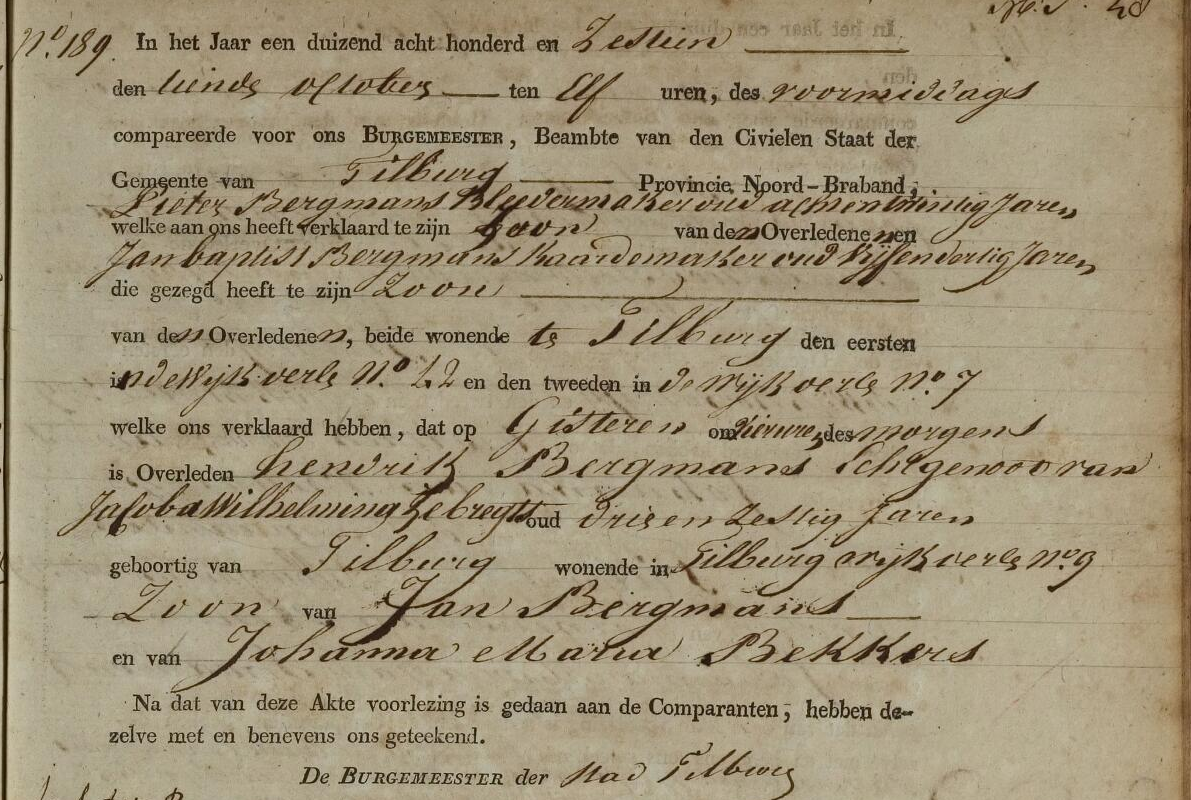 N.º 189. In het Jaar een duizend acht honderd en Zestien
den tiende october ten Elf uren, des voormiddags
compareerde voor ons BURGEMEESTER, Beambte van den Civielen Staat der
Gemeente van Tilburg Provincie Noord-Braband,
Pieter Bergmans Kledermaker oud achtentwintig Jaren
welke aan ons heeft verklaard te zijn Zoon van den Overledene en
Jan baptist Bergmans Kaardemaker oud Vijfendertig Jaren
die gezegd heeft te zijn Zoon
van den Overledenen, beide wonende te Tilburg den eersten
in de Wijk oerle N.º 42 en den tweeden in de wijk oerle N.º 7
welke ons verklaard hebben, dat op Gisteren om vier uren des morgens
is Overleden hendrik Bergmans Echtgenoot van
Jacoba Wilhelmina Zebregts oud drie en Zestig Jaren
geboortig van Tilburg wonende in Tilburg wijk oerle N.º 9
Zoon van Jan Bergmans
en van Johanna Maria Bekkers
Na dat van deze Akte voorlezing is gedaan aan de Comparanten, hebben de-
zelve met en benevens ons geteekend.
De BURGEMEESTER der stad Tilburg